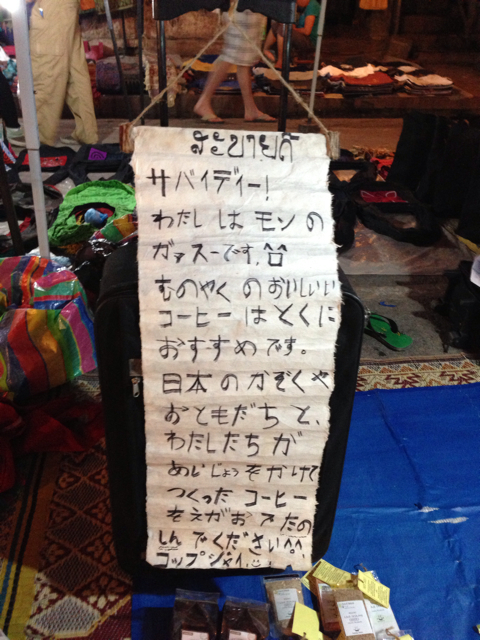 สะบายดี
サバイディー!
わたしはモンの
ガァスーです。^^
むのやくのおいしいい
コーヒーはとくに
おすすめです。
日本のかぞくや
おともだちと、
わたしたちが
めいじょうをかけて
つくったコーヒー
をえがおでたの
しんでください^^
コップジャイ